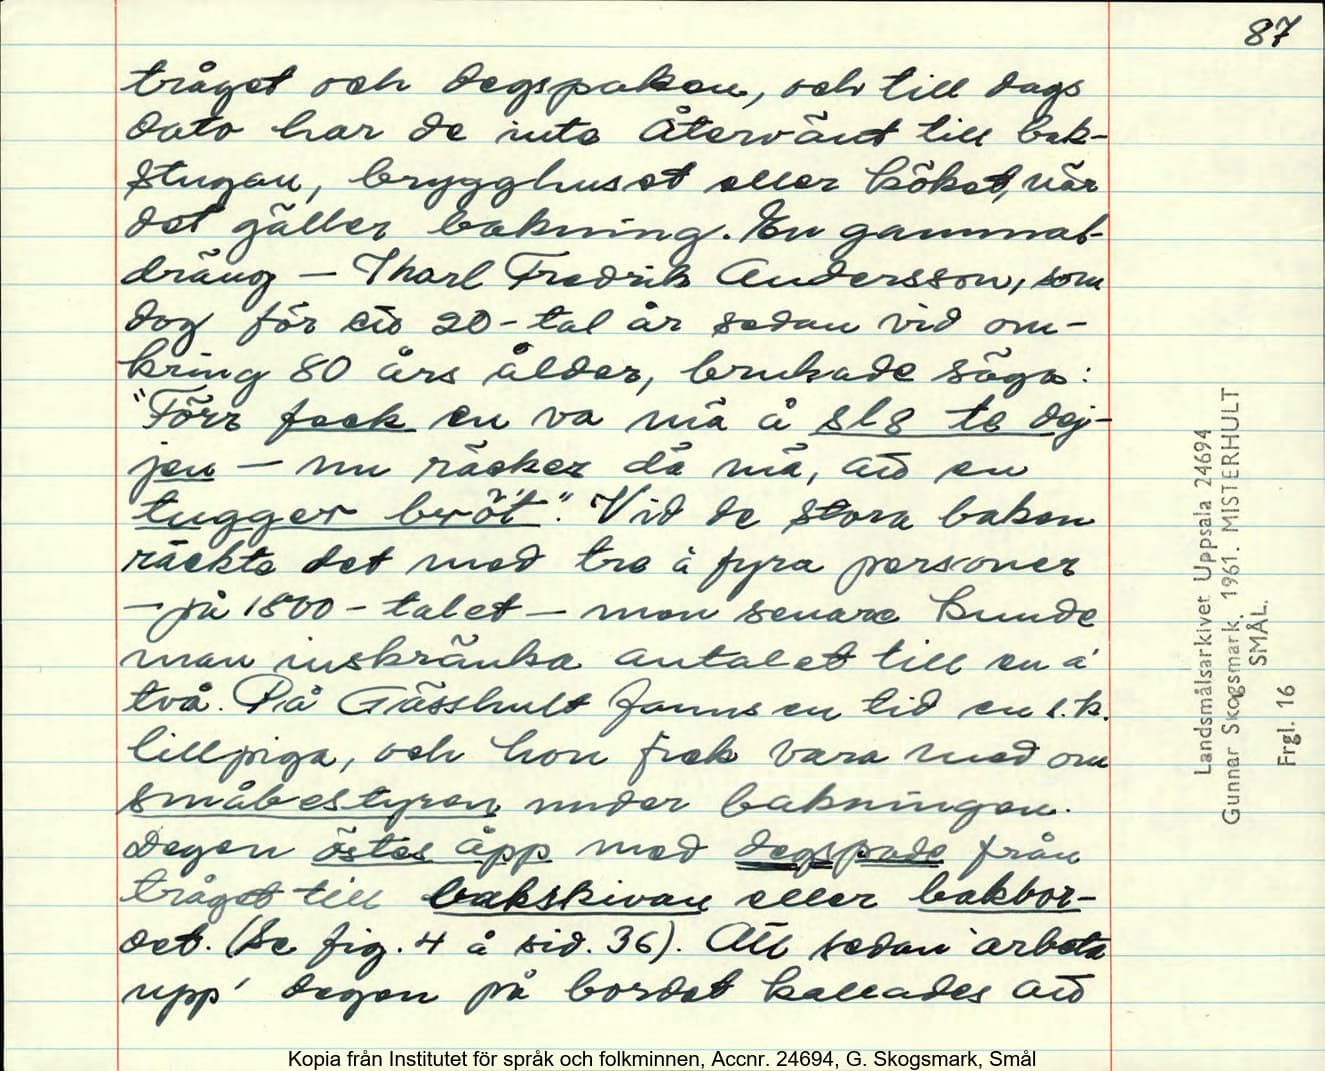 87
tråget och degspaken, och till dags
dato har de inte återvänt till bak-
stugan, brygghuset eller köket, när
det gäller bakning. En gammal
dräng – Kharl Fredrik Andersson, som
dog för ett 20-tal år sedan vid om-
kring 80 års ålder, brukade säga:
"Förr feck en va mä å slå te dej-
jen – nu räcker dä mä, att en
tugger bröt". Vid de stora baken
räckte det med tre à fyra personer
– på 1800-talet – men senare kunde
man inskränka antalet till en à
två. På Gässhult fanns en tid en s.k.
lillpiga, och hon fick vara med om
småbestyren under bakningen.
Degen östes åpp med degspade från
tråget till bakskivan eller bakbor-
det. (Se fig. 4 å sid. 36). Att sedan 'arbeta
upp' degen på bordet kallades att
Landsmålsarkivet Uppsala 24694
Gunnar Skogsmark. 1961. MISTERHULT
SMÅL.
Frgl. 16
Kopia från Institutet för språk och folkminnen, Accnr. 24694, G. Skogsmark, Smål